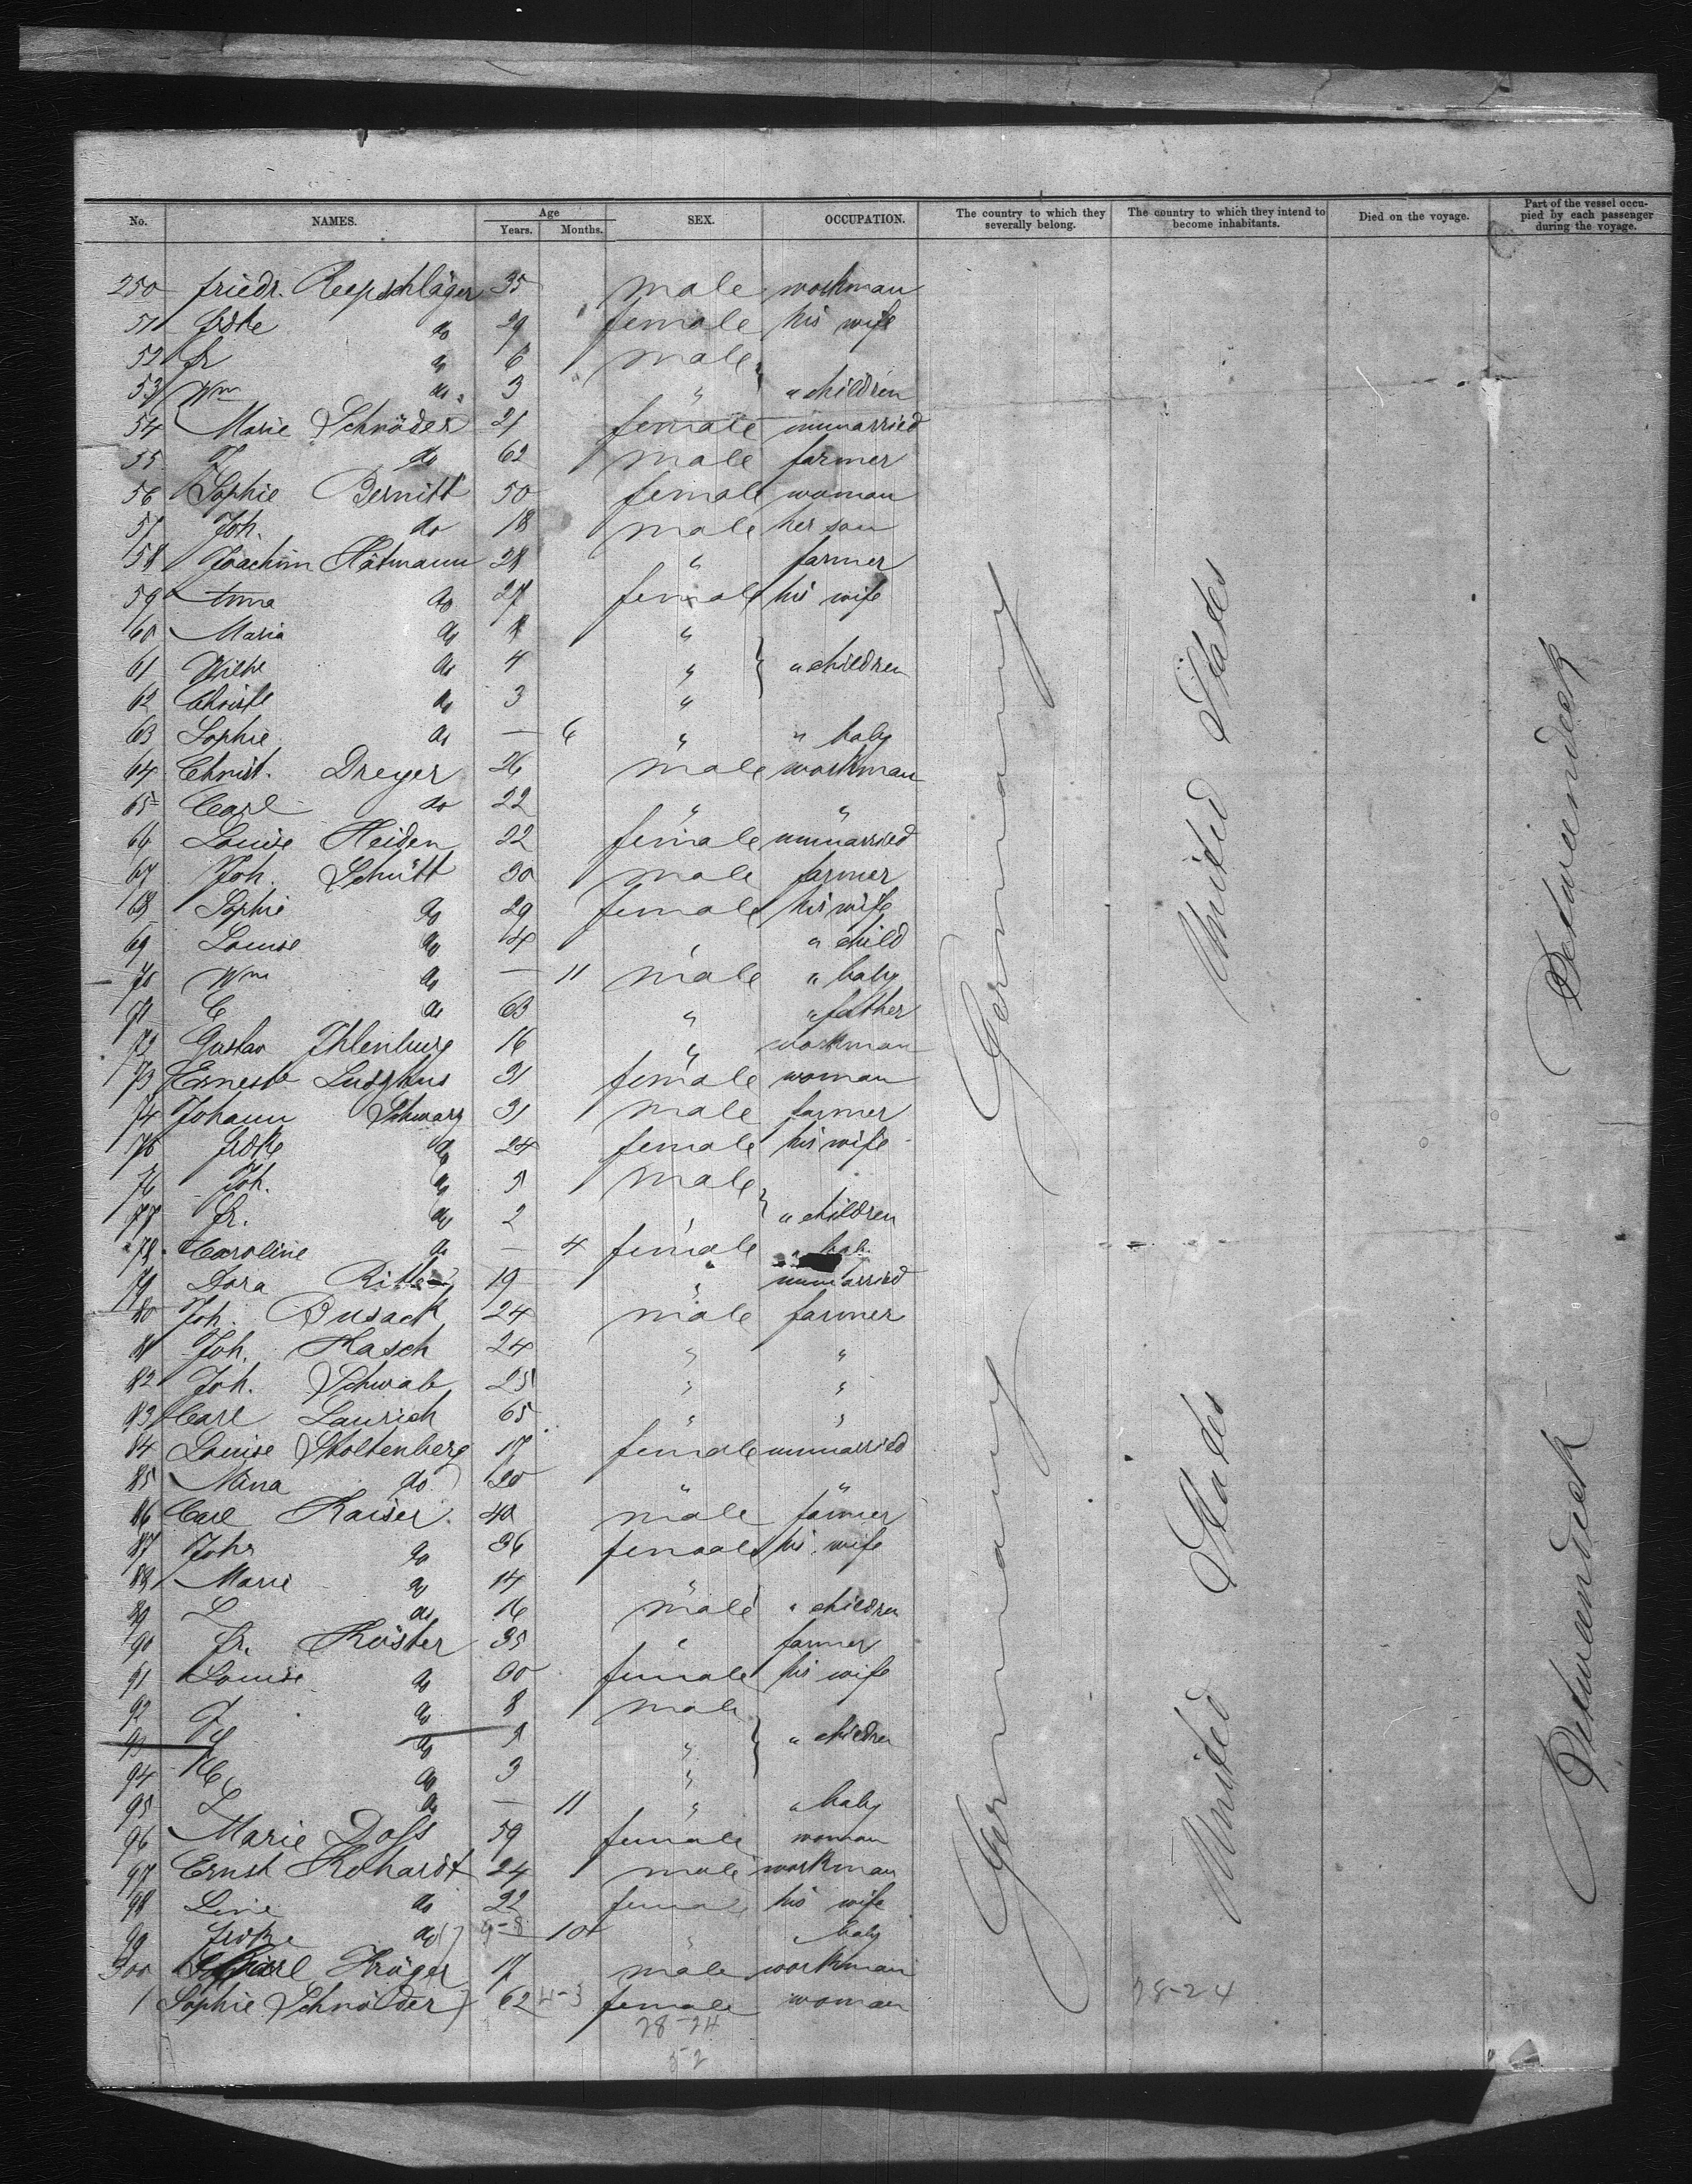 No. NAMES. Age Years. Months. SEX. OCCUPATION. The country to which they severally belong. The country to which they intend to become inhabitants. Died on the voyage. Part of the vessel occupied by each passenger during the voyage.
250 Friedr. Reepschläger 35 male workman
51 Fridke do 29 female his wife
52 Fr do 6 male
53 Wm do 3 " " children
54 Marie Schröder 21 female unmarried
55 J do 62 male farmer
56 Sophie Bernitt 50 female woman
57 Joh. do 18 male her son
58 Joachim Hätmann 28 " farmer
59 Anna do 27 female his wife
60 Maria do "
61 Wilhe do 4 " " children
62 Christe do 3 "
63 Sophie do — 6 " " baby
64 Christ. Dreyer 26 male workman
65 Carl do 22 " "
66 Louise Heiden 22 female unmarried
67 Joh. Schütt 30 male farmer
68 Sophie do 29 female his wife
69 Louise do 4 " " child
70 Wm do — 11 male " baby
71 C do 63 " " father
72 Gustav Ihlenburg 16 " workman
73 Erneste 31 female woman
74 Johann Schwarz 31 male farmer
75 Fridke do 24 female his wife
76 Joh. do 5 male
77 Fr. do 2 " " children
78 Caroline do — 4 female " bab
79 Dora 19 " unmarried
80 Joh. Busack 24 male farmer
81 Joh. Hasch 24 " "
82 Joh. Schwab 25 " "
83 Carl Laurich 65 " "
84 Louise Stoltenberg 17 female unmarried
85 Mina do 20 " "
86 Carl Kaiser 40 male farmer
87 Johs do 36 female his wife
88 Marie do 14 "
89 L do 16 male " children
90 Fr. Köster 35 " farmer
91 Louise do 30 female his wife
92 J do 8 male
93 do 5 " " children
94 C do 3 "
95 L do — 11 " " baby
96 Marie Dass 59 female woman
97 Ernst 24 male workman
98 Line do 22 female his wife
99 do 10 " baby
300 Carl Krüger 17 male workman
1 Sophie Schröder 62 4-3 female woman
28-24
52
Germany
Germany
United States
United States
28-24
Betweendeck
Betweendeck